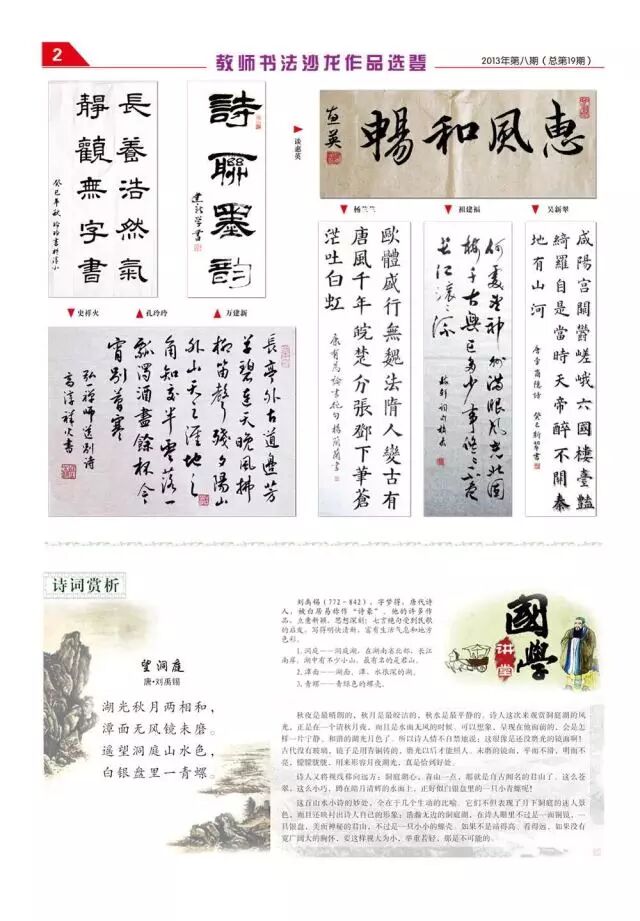 2
教师书法沙龙作品选登
2013年第八期（总第19期）
長養浩然氣
靜觀無字書
癸巳年秋玲玲書於淳小
詩聯墨韵
建新學書
谈惠英
惠風和暢
惠英
杨兰兰
祖建福
吴新翠
歐體盛行無魏法隋人變古有
唐風千年皖楚分張鄧下筆蒼
茫吐白虹
康有為論書絕句楊蘭蘭書
何處望神州滿眼風光北固
樓千古興亡多少事悠悠不盡
長江滾滾流
咸陽宮闕鬱嵯峨六國樓臺豔
綺羅自是當時天帝醉不關秦
地有山河
唐李商隱詩 癸巳新翠書
史祥火
孔玲玲
万建新
長亭外古道邊芳
草碧連天晚風拂
柳笛聲殘夕陽山
外山天之涯地之
角知交半零落一
瓢濁酒盡餘杯今
宵別夢寒
弘一禪師送別詩
高淳祥火書
诗词赏析
望洞庭
唐·刘禹锡
湖光秋月两相和，
潭面无风镜未磨。
遥望洞庭山水色，
白银盘里一青螺。
刘禹锡（772-842），字梦得，唐代诗
人，被白居易称作“诗豪”。他的许多作
品，立意新颖，思想深刻；七言绝句受到民歌
的启发，写得明快清新，富有生活气息和地方
色彩。
1.洞庭——洞庭湖，在湖南省北部，长江
南岸。湖中有不少小山，最有名的是君山。
2.潭面——湖面。潭，水很深的湖。
3.青螺——青绿色的螺壳。
國學
讲堂
秋夜是最晴朗的，秋月是最皎洁的，秋水是最平静的。诗人这次来观赏洞庭湖的风
光，正是在一个清秋月夜，而且是水面无风的时候。可以想象，呈现在他面前的，会是怎
样一片宁静、和谐的湖光月色了。所以诗人情不自禁地说：这很像是还没磨光的镜面啊！
古代没有玻璃，镜子是用青铜铸的，磨光以后才能照人。未磨的镜面，平而不滑，明而不
亮，朦朦胧胧，用来形容月夜湖光，真是恰到好处。
诗人又将视线移向远方：洞庭湖心，青山一点，那就是自古闻名的君山了。这么苍
翠，这么小巧，蹲在皓月清辉的水面上，正好似白银盘里的一只小青螺呢！
这首山水小诗的妙处，全在于几个生动的比喻。它们不但表现了月下洞庭的迷人景
色，而且还映衬出诗人自己的形象：浩瀚无边的洞庭湖，在诗人眼里不过是一面铜镜，一
具银盘，美而神秘的君山，不过是一只小小的螺壳。如果不是站得高、看得远，如果没有
宽广阔大的胸怀，要这样视大为小，举重若轻，那是不可能的。